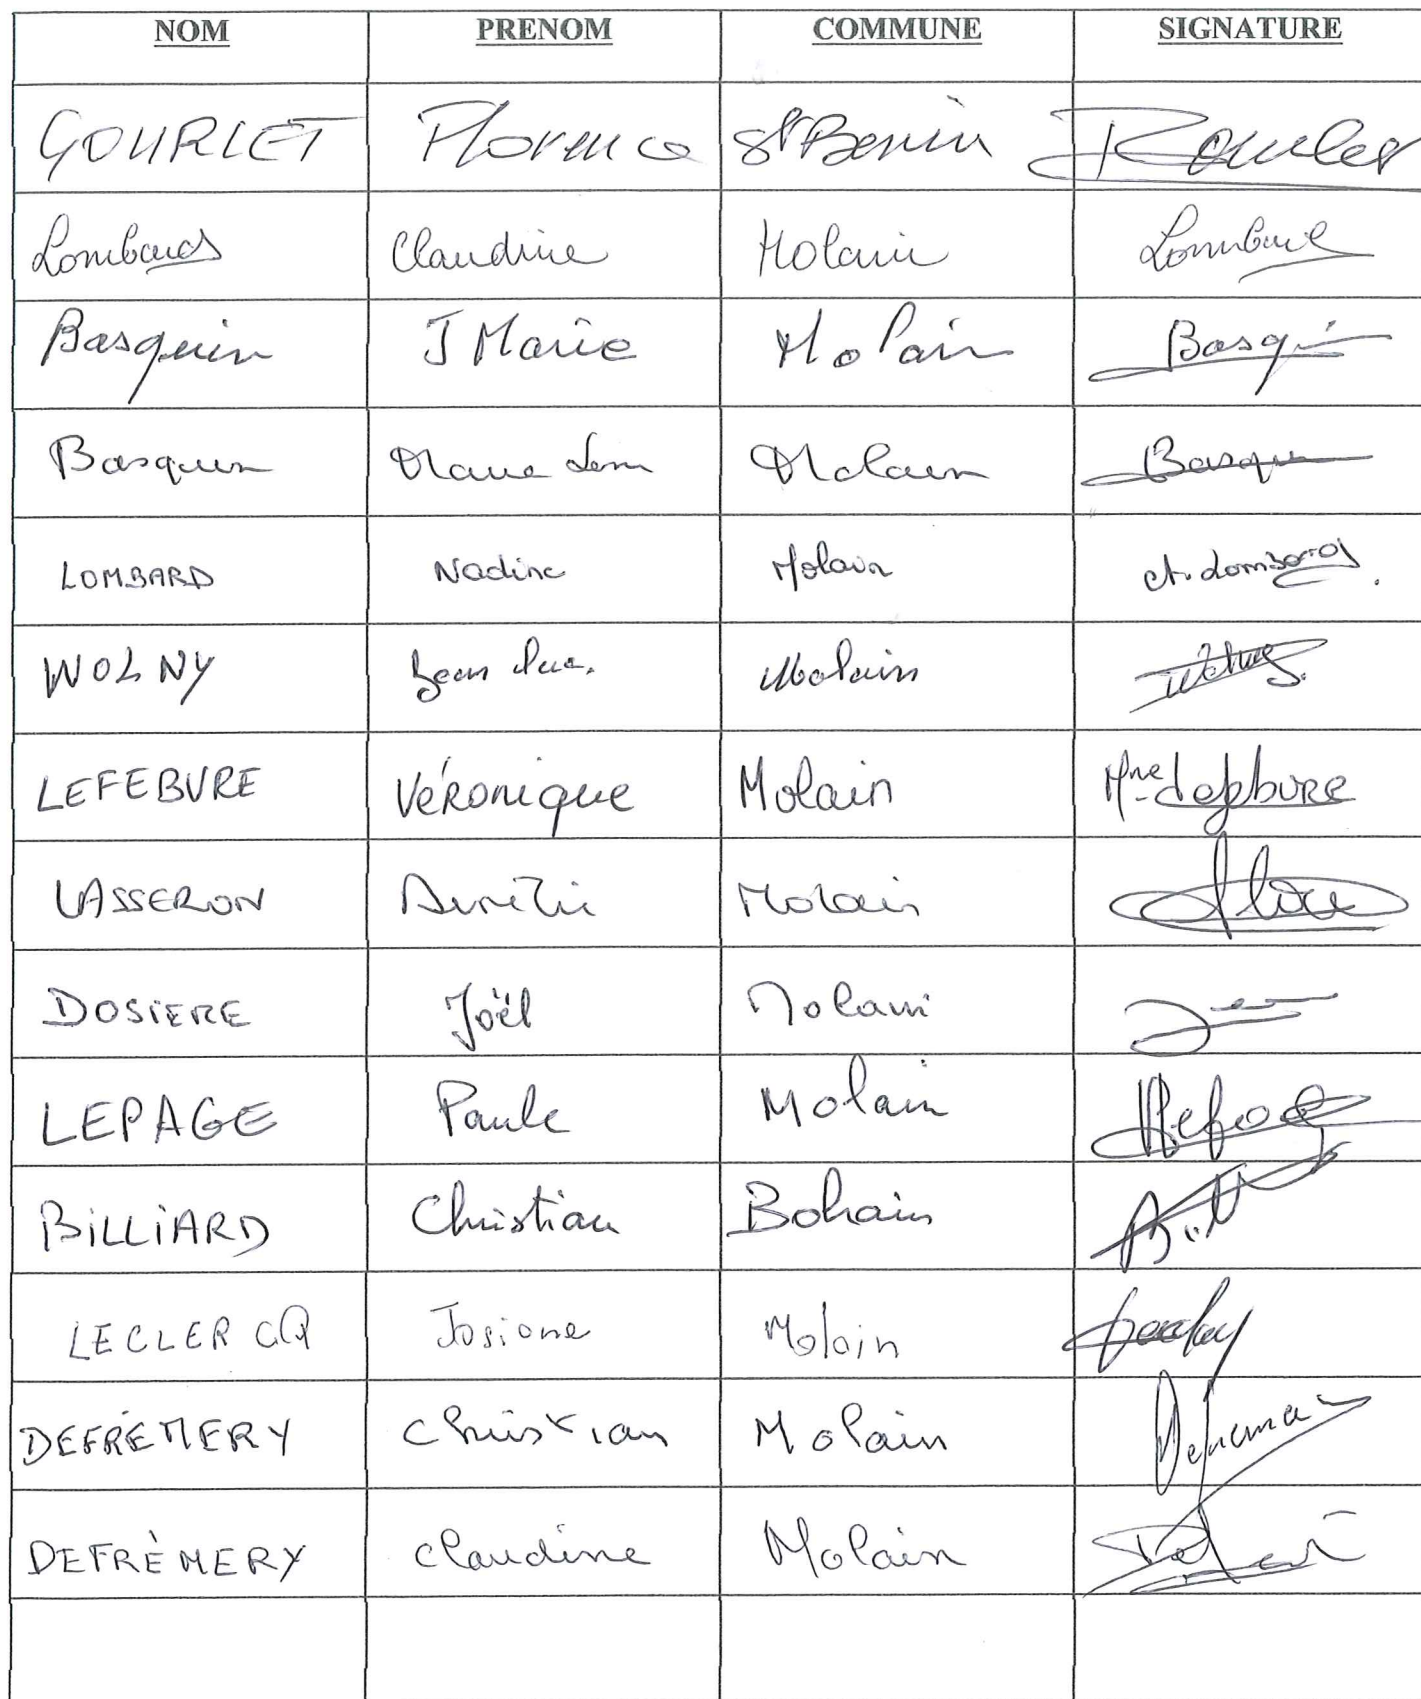 NOM PRENOM COMMUNE SIGNATURE
GOURLET Florence St Benin
Lombard Claudine Molain Lombard
Basquin J Marie Molain Basqui
Basquin Marie Molain Basqu
LOMBARD Nadine Molain N. Lombard
WOLNY Jean Luc. Molain Wolny
LEFEBVRE Véronique Molain Mme Lefebvre
VASSERON Aurélie Molain
DOSIERE Joël Molain
LEPAGE Paule Molain Lepage
BiLLiARD Christian Bohain Bill
LECLERCQ Josiane Molain
DEFRÉMERY Christian Molain
DEFRÈMERY Claudine Molain